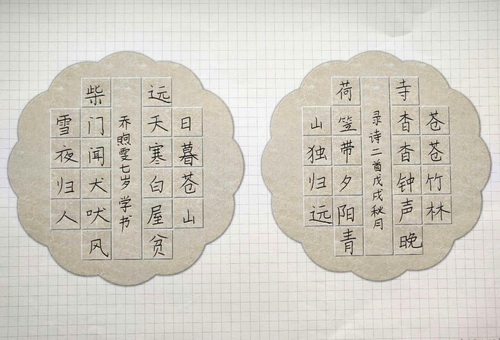 苍苍竹林
寺杳杳钟声晚
录诗二首戊戌秋月
荷笠带夕阳青
山独归远
日暮苍山
远天寒白屋贫
乔煦雯七岁 学书
柴门闻犬吠风
雪夜归人